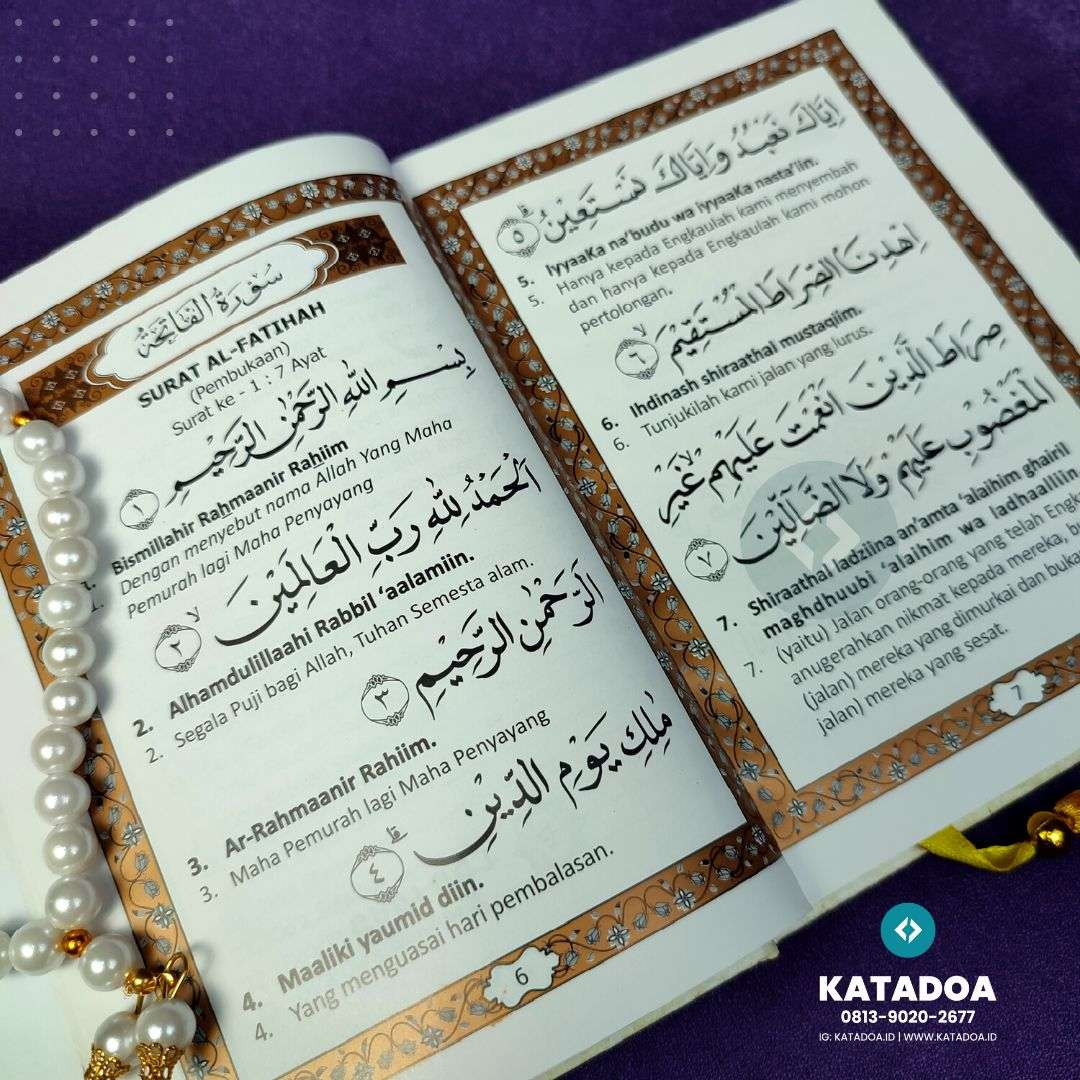 سُوْرَةُ الْفَاتِحَةُ
SURAT AL-FATIHAH
(Pembukaan)
Surat ke - 1 : 7 Ayat
بِسْمِ اللهِ الرَّحْمٰنِ الرَّحِيْمِ ۝١
Bismillahir Rahmaanir Rahiim
Dengan menyebut nama Allah Yang Maha
Pemurah lagi Maha Penyayang
اَلْحَمْدُ لِلّٰهِ رَبِّ الْعَالَمِيْنَ ۝٢
2. Alhamdulillaahi Rabbil ‘aalamiin.
2. Segala Puji bagi Allah, Tuhan Semesta alam.
اَلرَّحْمٰنِ الرَّحِيْمِ ۝٣
3. Ar-Rahmaanir Rahiim.
3. Maha Pemurah lagi Maha Penyayang
مٰلِكِ يَوْمِ الدِّيْنِ ۝٤
4. Maaliki yaumid diin.
4. Yang menguasai hari pembalasan.
6
اِيَّاكَ نَعْبُدُ وَاِيَّاكَ نَسْتَعِيْنُ ۝٥
5. IyyaaKa na’budu wa iyyaaKa nasta’iin.
5. Hanya kepada Engkaulah kami menyembah
dan hanya kepada Engkaulah kami mohon
pertolongan.
اِهْدِنَا الصِّرَاطَ الْمُسْتَقِيْمَ ۝٦
6. Ihdinash shiraathal mustaqiim.
6. Tunjukilah kami jalan yang lurus.
صِرَاطَ الَّذِيْنَ اَنْعَمْتَ عَلَيْهِمْ غَيْرِ
الْمَغْضُوْبِ عَلَيْهِمْ وَلَا الضَّآلِّيْنَ ۝٧
7. Shiraathal ladziina an’amta ‘alaihim ghairil
maghdhuubi ‘alaihim wa ladhaalliiin
7. (yaitu) Jalan orang-orang yang telah
anugerahkan nikmat kepada mereka,
(jalan) mereka yang dimurkai dan
jalan) mereka yang sesat.
7
KATADOA
0813-9020-2677
IG: KATADOA.ID | WWW.KATADOA.ID